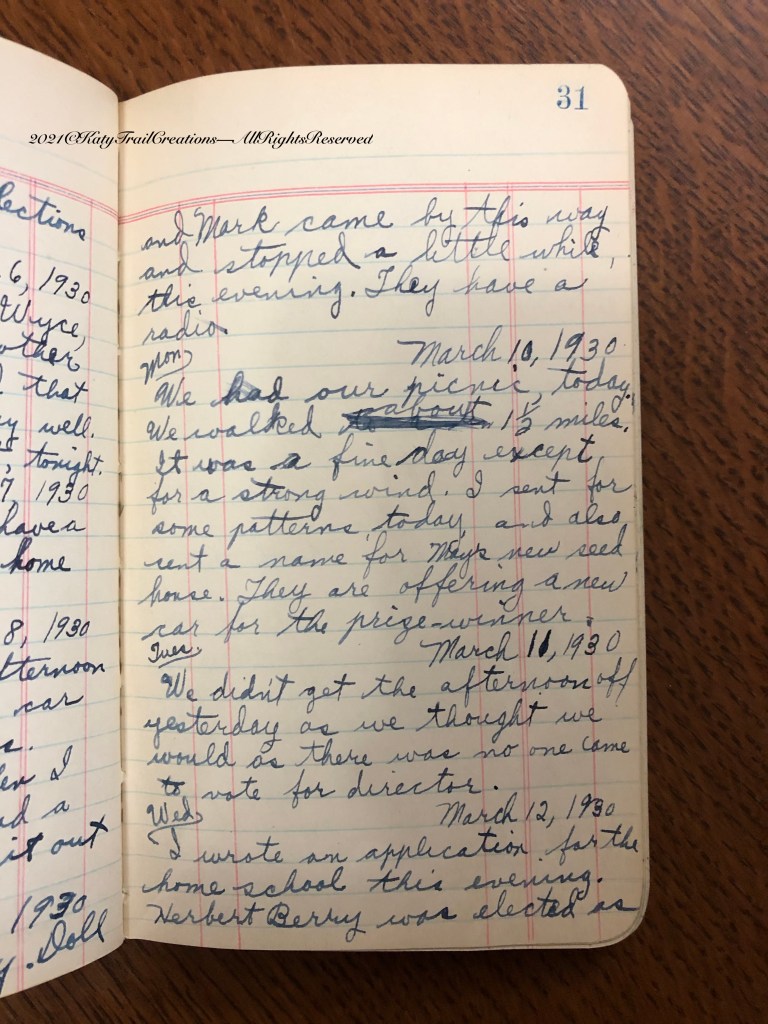 31
2021©KatyTrailCreations—AllRightsReserved
lections
6, 1930
Wyce,
other
d that
y well.
tonight.
7, 1930
have a
home
8, 1930
fternoon
car
s.
en I
ad a
it out
1930
y. Doll
and Mark came by this way
and stopped a little while,
this evening. They have a
radio.
Mon
March 10, 1930
We had our picnic, today.
We walked about 1½ miles.
It was a fine day except,
for a strong wind. I sent for
some patterns, today, and also
sent a name for May's new seed
house. They are offering a new
car for the prize-winner.
Tues.
March 11, 1930
We didn't get the afternoon off
yesterday as we thought we
would as there was no one came
to vote for director.
Wed.
March 12, 1930
I wrote an application for the
home school this evening.
Herbert Berry was elected as